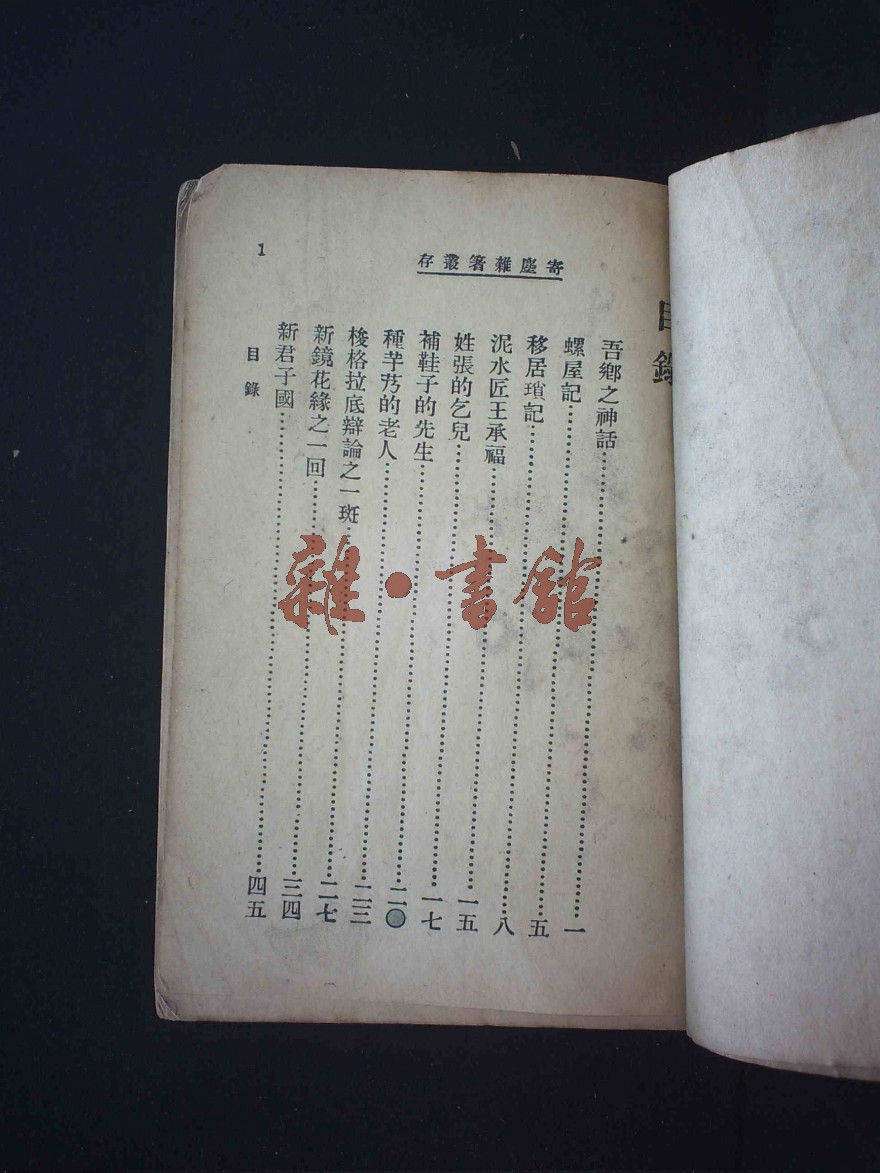 寄塵雜箸叢存
目錄
吾鄉之神話……一
螺屋記……五
移居瑣記……八
泥水匠王承福……一五
姓張的乞兒……一七
補鞋子的先生……二〇
種芋艿的老人……二三
梭格拉底辯論之一斑……二七
新鏡花緣之一回……三四
新君子國……四五
目錄
1
雜·書館